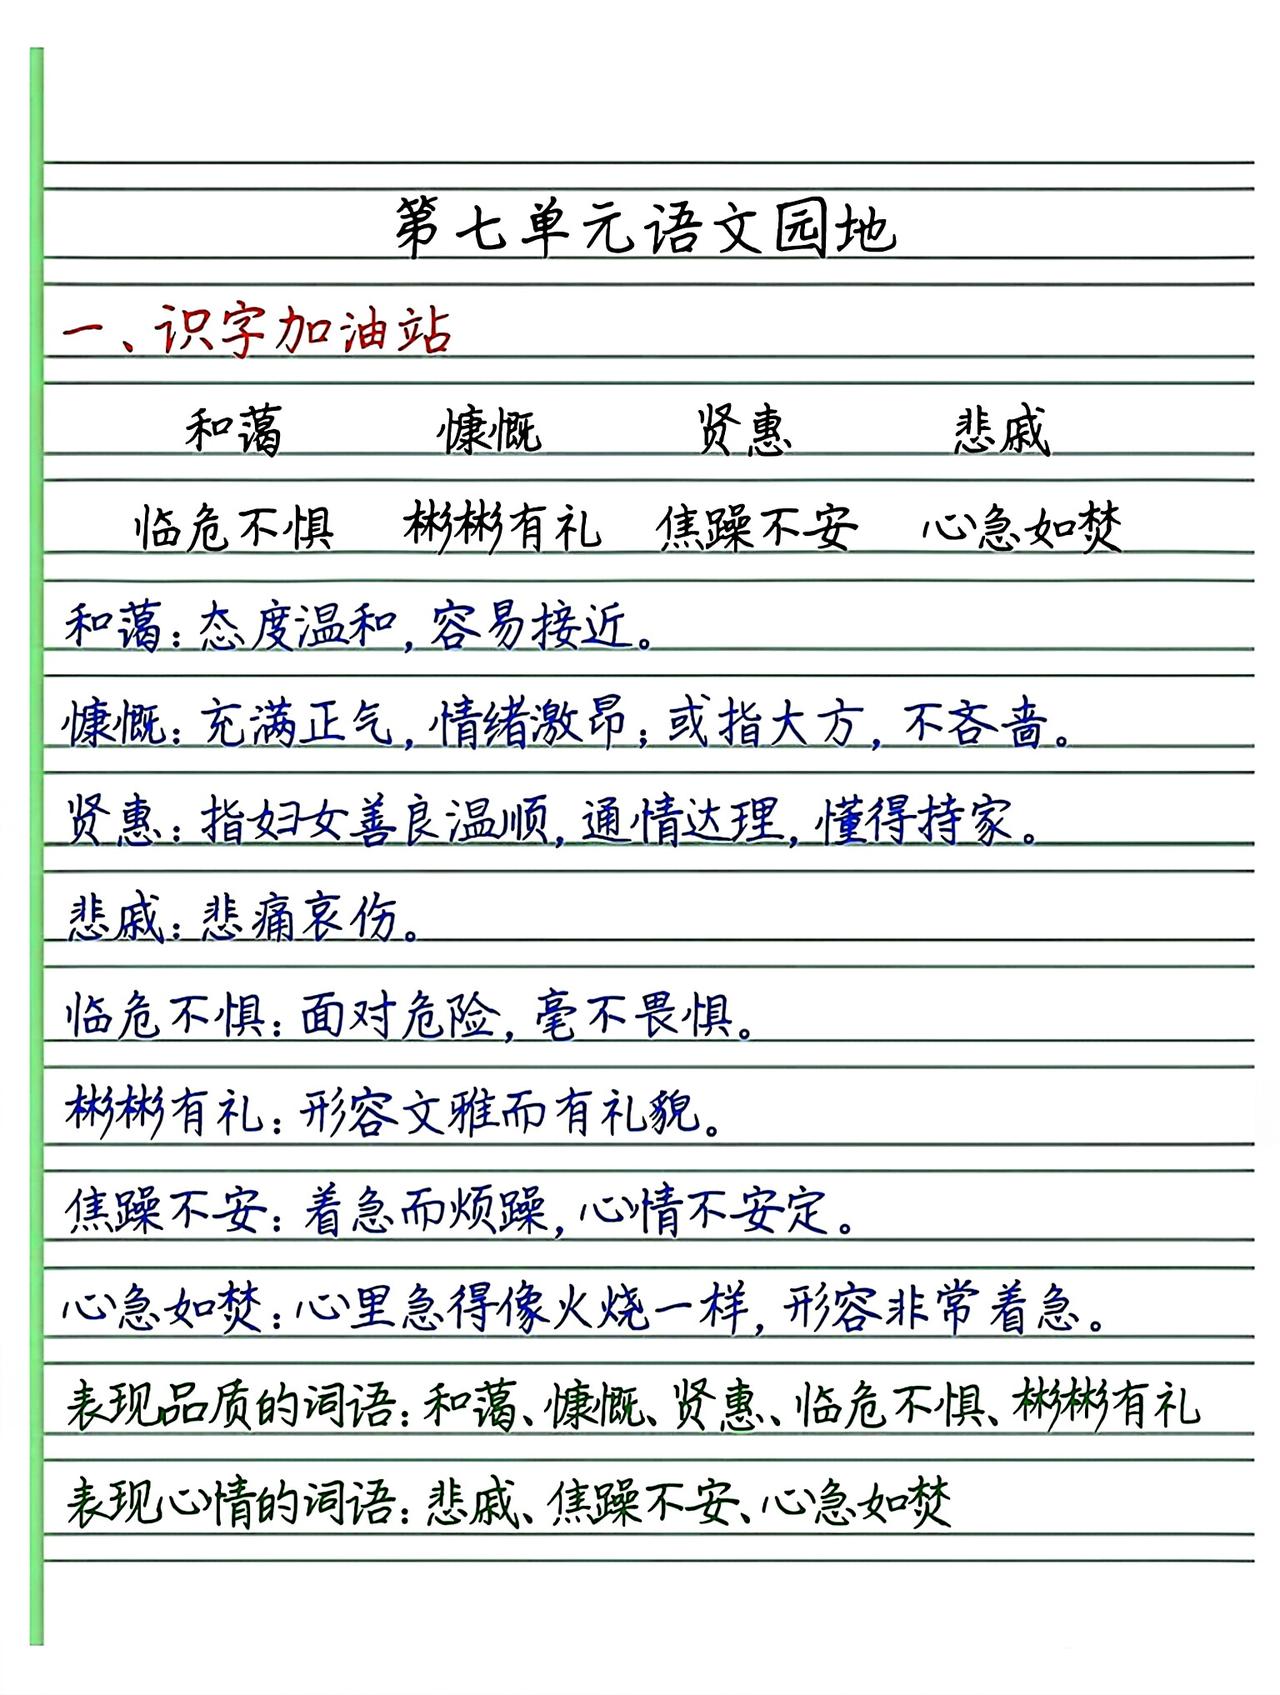 第七单元语文园地
一、识字加油站
和蔼 慷慨 贤惠 悲戚
临危不惧 彬彬有礼 焦躁不安 心急如焚
和蔼：态度温和，容易接近。
慷慨：充满正气，情绪激昂；或指大方，不吝啬。
贤惠：指妇女善良温顺，通情达理，懂得持家。
悲戚：悲痛哀伤。
临危不惧：面对危险，毫不畏惧。
彬彬有礼：形容文雅而有礼貌。
焦躁不安：着急而烦躁，心情不安定。
心急如焚：心里急得像火烧一样，形容非常着急。
表现品质的词语：和蔼、慷慨、贤惠、临危不惧、彬彬有礼
表现心情的词语：悲戚、焦躁不安、心急如焚